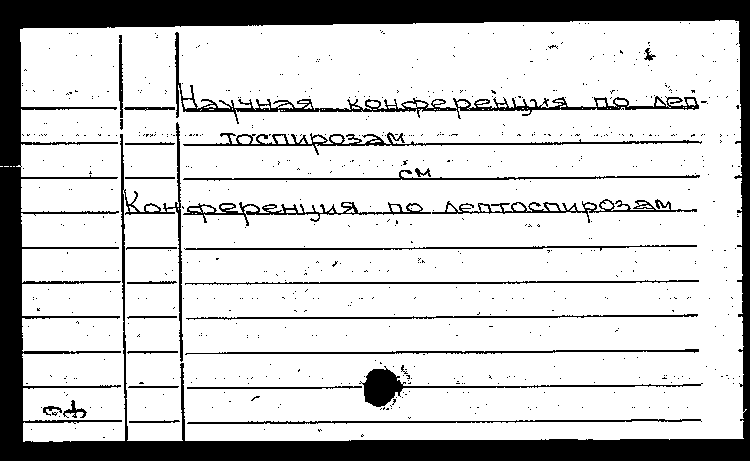 Научная конференция по леп-
тоспирозам.
см.
Конференция по лептоспирозам